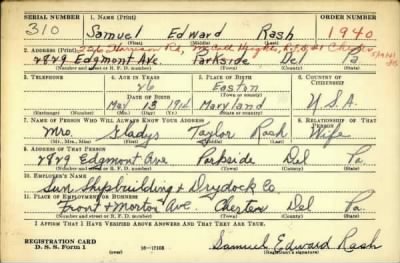 SERIAL NUMBER 1. NAME (Print) ORDER NUMBER
310 Samuel Edward Rash 1940
(First) (Middle) (Last)
2. ADDRESS (Print)
2829 Edgmont Ave. Parkside Del Pa
(Number and street or R. F. D. number) (Town) (County) (State)
3. TELEPHONE 4. AGE IN YEARS 5. PLACE OF BIRTH 6. COUNTRY OF CITIZENSHIP
26 Easton
(Town or county)
DATE OF BIRTH
May 13 1914 Maryland U.S.A.
(Exchange) (No.) (Mo.) (Day) (Yr.) (State or country)
7. NAME OF PERSON WHO WILL ALWAYS KNOW YOUR ADDRESS 8. RELATIONSHIP OF THAT PERSON
Mrs. Gladys Taylor Rash Wife
(Mr., Mrs., Miss) (First) (Middle) (Last)
9. ADDRESS OF THAT PERSON
2829 Edgmont Ave Parkside Del Pa.
(Number and street or R. F. D. number) (Town) (County) (State)
10. EMPLOYER'S NAME
Sun Shipbuilding & Drydock Co.
11. PLACE OF EMPLOYMENT OR BUSINESS
Front & Morton Ave. Chester Del Pa.
(Number and street or R. F. D. number) (Town) (County) (State)
I AFFIRM THAT I HAVE VERIFIED ABOVE ANSWERS AND THAT THEY ARE TRUE.
REGISTRATION CARD
D. S. S. Form 1 16-17105 Samuel Edward Rash
(Registrant's signature)